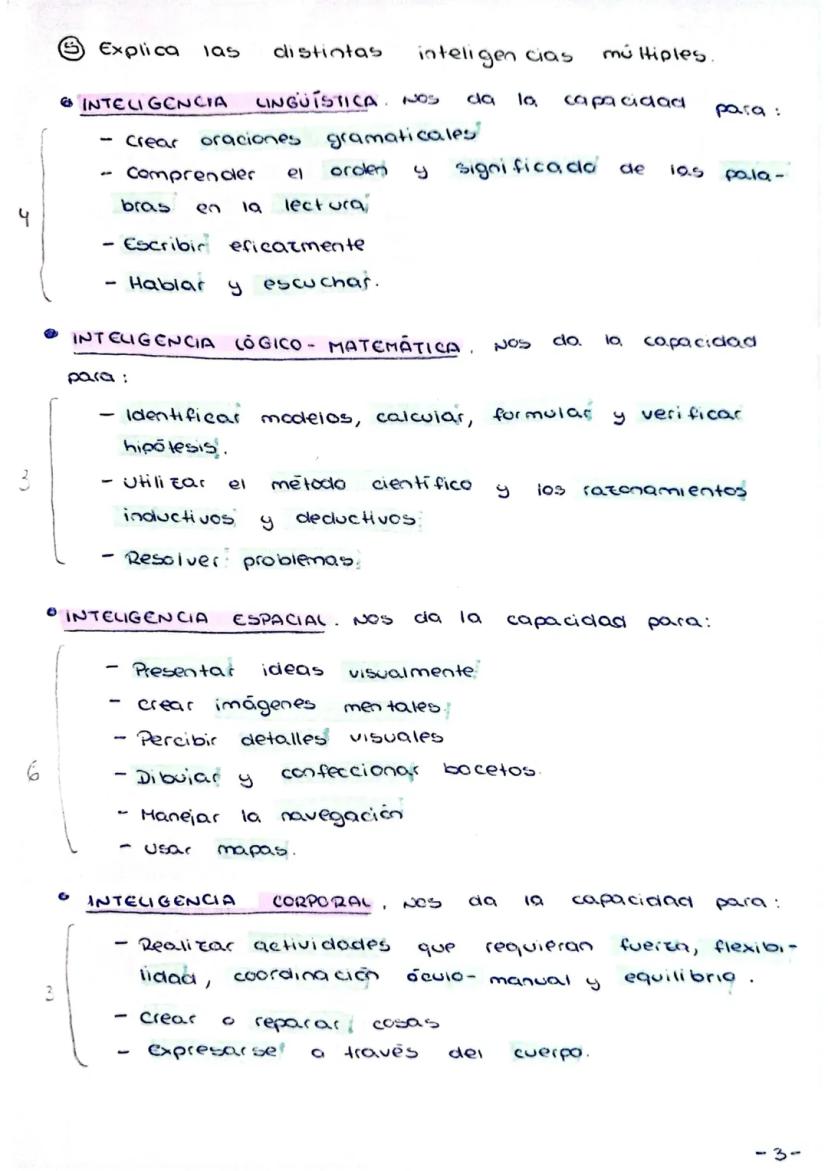 ⑤ Explica las distintas inteligencias múltiples.
• INTELIGENCIA LINGÜÍSTICA. Nos da la capacidad para:
- Crear oraciones gramaticales
- Comprender el orden y significado de las pala-
bras en la lectura
4
- Escribir eficazmente
- Hablar y escuchar.
• INTELIGENCIA LÓGICO - MATEMÁTICA. Nos da la capacidad
para:
- Identificar modelos, calcular, formular y verificar
hipótesis.
3
- Utilizar el método científico y los razonamientos
inductivos y deductivos
- Resolver problemas
• INTELIGENCIA ESPACIAL. Nos da la capacidad para:
- Presentar ideas visualmente
- crear imágenes mentales
- Percibir detalles visuales
6
- Dibujar y confeccionar bocetos.
- Manejar la navegación
- Usar mapas.
• INTELIGENCIA CORPORAL. Nos da la capacidad para:
- Realizar actividades que requieran fuerza, flexibi-
lidad, coordinación óculo-manual y equilibrio.
3
- Crear o reparar cosas
- Expresarse a través del cuerpo.
-3-